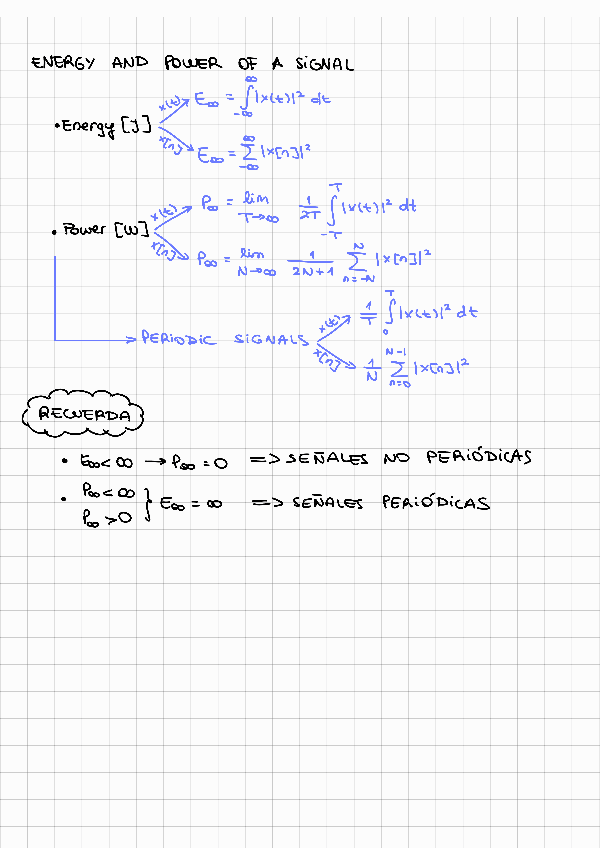 ENERGY AND POWER OF A SIGNAL
• Energy [J]
x(t) E∞ = ∫_{-∞}^{∞} |x(t)|² dt
x[n] E∞ = ∑_{-∞}^{∞} |x[n]|²
• Power [W]
x(t) P∞ = lim_{T→∞} 1/2T ∫_{-T}^{T} |x(t)|² dt
x[n] P∞ = lim_{N→∞} 1/2N+1 ∑_{n=-N}^{N} |x[n]|²
PERIODIC SIGNALS
x(t) 1/T ∫_{0}^{T} |x(t)|² dt
x[n] 1/N ∑_{n=0}^{N-1} |x[n]|²
RECUERDA
• E∞ < ∞ → P∞ = 0 => SEÑALES NO PERIÓDICAS
• P∞ < ∞
P∞ > 0 } E∞ = ∞ => SEÑALES PERIÓDICAS